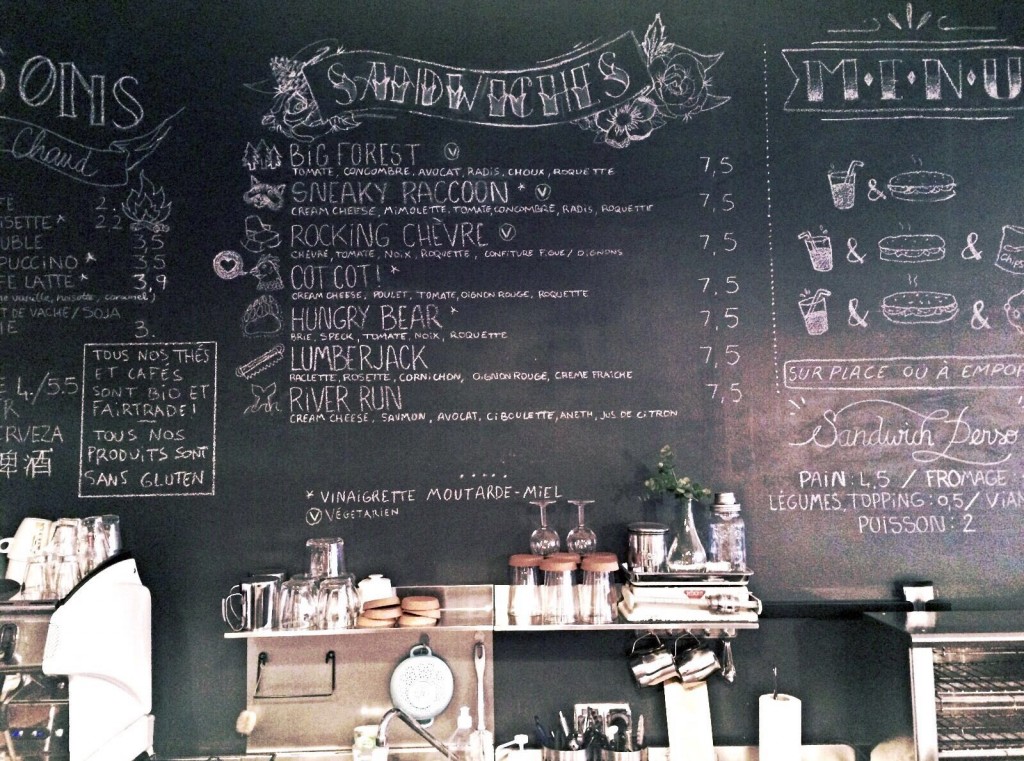 ONS
Chaud
2.
ISETTE* 2.2
UBLE 3.5
PUCCINO * 3.5
E LATTE * 3,9
vanille, noisette, caramel,
T DE VACHE/SOJA
3.
TOUS NOS THÉS
ET CAFÉS
SONT BIO ET
FAIRTRADE!
TOUS NOS
PRODUITS SONT
SANS GLUTEN
4./5.5
R
CERVEZA
啤酒
SANDWICHES
BIG FOREST V 7,5
TOMATE, CONCOMBRE, AVOCAT, RADIS, CHOUX, ROQUETTE
SNEAKY RACCOON * V 7,5
CREAM CHEESE, MIMOLETTE, TOMATE, CONCOMBRE, RADIS, ROQUETTE
ROCKING CHÈVRE V 7,5
CHÈVRE, TOMATE, NOIX, ROQUETTE, CONFITURE FIGUE/OIGNONS
COT COT! * 7,5
CREAM CHEESE, POULET, TOMATE, OIGNON ROUGE, ROQUETTE
HUNGRY BEAR * 7,5
BRIE, SPECK, TOMATE, NOIX, ROQUETTE
LUMBERJACK 7,5
RACLETTE, ROSETTE, CORNICHON, OIGNON ROUGE, CREME FRAICHE
RIVER RUN 7,5
CREAM CHEESE, SAUMON, AVOCAT, CIBOULETTE, ANETH, JUS DE CITRON
* VINAIGRETTE MOUTARDE-MIEL
V VÉGÉTARIEN
M·E·N·U
&
& &
Chips
& &
SUR PLACE OÙ À EMPOR
Sandwich Perso
PAIN: 4,5 / FROMAGE
LÉGUMES, TOPPING: 0,5/ VIAN
PUISSON: 2